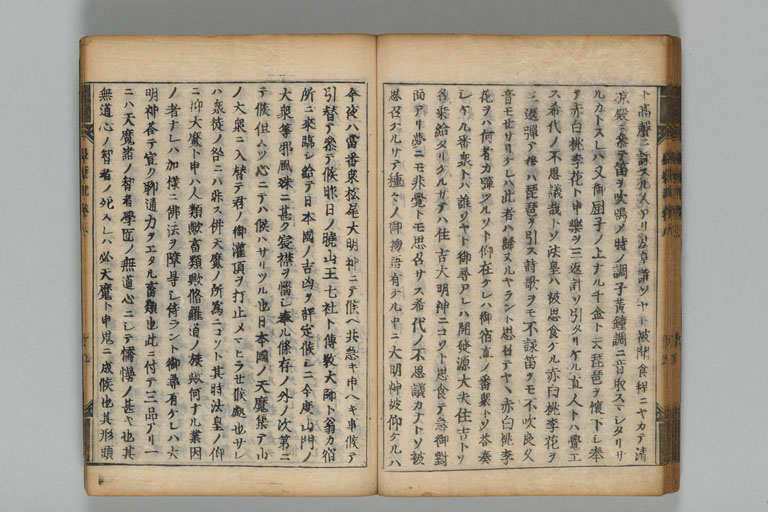 ト高聲ニ詠スル人アリ法皇誰ソヤト被聞食程ニヤカテ清
凉殿ニ參テ笛ヲ吹鳴ノ時ノ調子黄鐘調ニ音取スマシタリサ
ルカトスレハ又御厨子ノ上ナル千金ト云琵琶ヲ懷下シ奉
テ赤白桃李花ト申樂ヲ三返計ソ引タリケル直人トハ覺エ
ス希代ノ不思議哉トソ法皇ハ被思食ケル赤白桃李花ヲ
三返彈テ後ハ琵琶ヲ引ス詩歌ヲモ不詠笛ヲモ不吹良久
音モセサリケレハ此者ハ歸ヌルヤラント思召テヤヽ赤白桃李
花ヲハ何者カ彈ツルソト仰在ケレハ御宿直ノ番衆トソ答奏
シケル番衆トハ誰ソヤト御尋アレハ開發源大夫住吉トソ
名乘給タリケルサテハ住吉大明神ニコソト思食テ急御對
面アリ夢ニモ非覺トモ思召サス希代ノ不思議カナトソ被
思召ケルサテ種々ノ御物語有ケル中ニ大明神被仰ケルハ
今夜ハ當番衆松尾大明神ニテ候ヘ共急キ申ヘキ事候テ
引替テ參テ候昨日ノ曉山王七社ト傳教大師ト翁カ宿
所ニ來臨シ給テ日本國ノ吉凶ヲ評定候シニ今度山門ノ
大衆等邪風殊ニ甚ク宸襟ヲ惱シ奉ル條存ノ外ノ次第ニ
テ候但ムツ心ニテハ候ハサリツル也日本國ノ天魔集テ山
ノ大衆ニ入替テ君ノ御灌頂ヲ打止メマヒラセ候處也サレ
ハ衆徒ノ咎ニハ非ス併天魔ノ所爲ニコソト其時法皇ノ仰
ニ抑天魔ト申ハ人類歟畜類歟修羅道ノ族歟何ナル業因
ノ者ナレハ加樣ニ佛法ヲ障导シ侍ラント御尋有ケレハ大
明神答テ宣ク聊通力ヲエタル畜類也此ニ付テ三品アリ一
ニハ天魔諸ノ智者學匠ノ無道心ニシテ憍慢ノ甚キ也其
無道心ノ智者ノ死スレハ必天魔ト申鬼ニ成候也其形頭